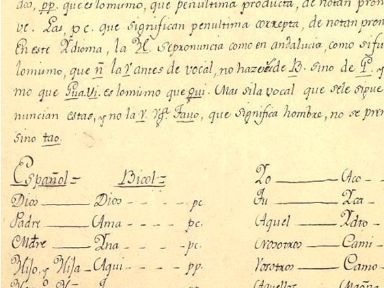 dos, pp. que es lo mismo, que penultima producta, de notan pron
ve. Las, p.c. que significan penultima correpta, de notan pron
En este Ydioma, la H. se pronuncia como en andalucia, como si fu
lo mismo, que ñ la Y antes de vocal, no haze de B. sino de
mo que Gua.Vi. es lo mismo que gui. Mas si la vocal que se le sigue
nuncian estas, y no la v. vg.ª Tauo, que significa hombre, no se pro
sino tao.
Español= Bicol=
Dios Dios - - - - pc.
Padre Ama - - - - pc.
Madre Yna - - - - pc.
Hijo, y Hija Aqui - - - - pp.
Yo Aco - -
Tu Yca - -
Aquel Ydto - -
Nosotros Cami -
Vosotros Camo -
Aquellos